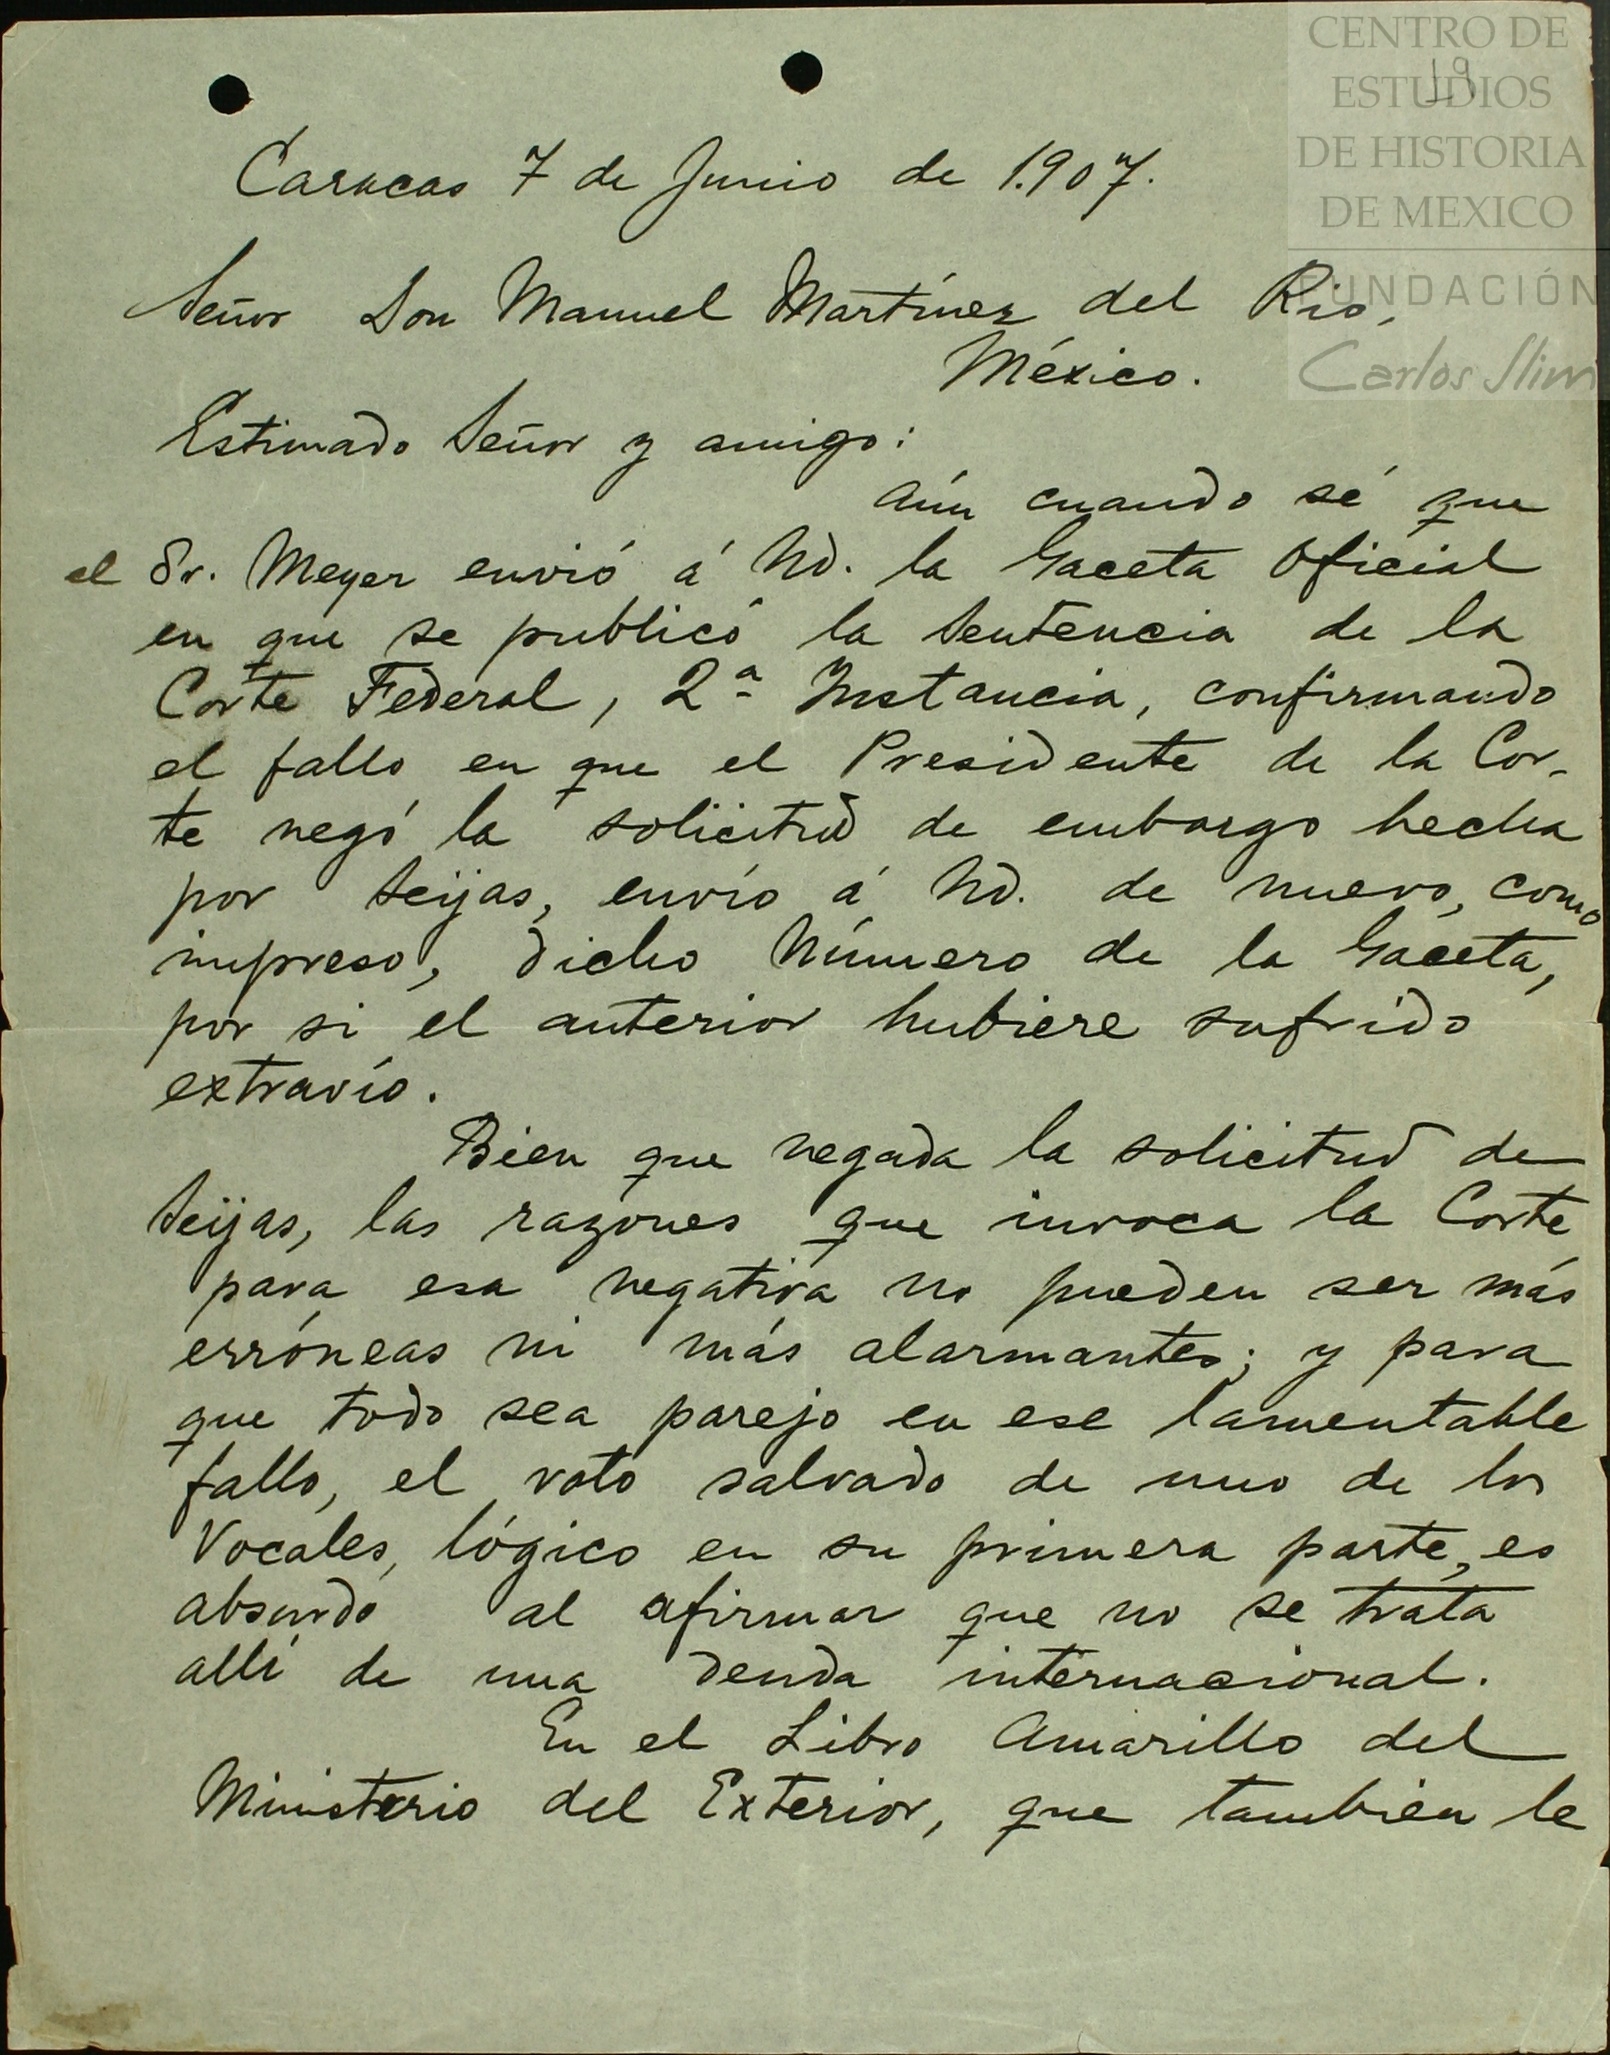 CENTRO DE
ESTUDIOS
DE HISTORIA
DE MEXICO
FUNDACIÓN
Carlos Slim
19
Caracas 7 de Junio de 1.907.
Señor Don Manuel Martínez del Rio,
México.
Estimado Señor y amigo:
Aún cuando sé que
el Sr. Meyer envió á Ud. la Gaceta Oficial
en que se publicó la Sentencia de la
Corte Federal, 2ª Instancia, confirmando
el fallo en que el Presidente de la Cor-
te negó la solicitud de embargo hecha
por Seijas, envío á Ud. de nuevo, como
impreso, dicho Número de la Gaceta,
por si el anterior hubiere sufrido
extravío.
Bien que negada la solicitud de
Seijas, las razones que invoca la Corte
para esa negativa no pueden ser más
erróneas ni más alarmantes; y para
que todo sea parejo en ese lamentable
fallo, el voto salvado de uno de los
Vocales, lógico en su primera parte, es
absurdo al afirmar que no se trata
allí de una deuda internacional.
En el Libro Amarillo del
Ministerio del Exterior, que tambien le